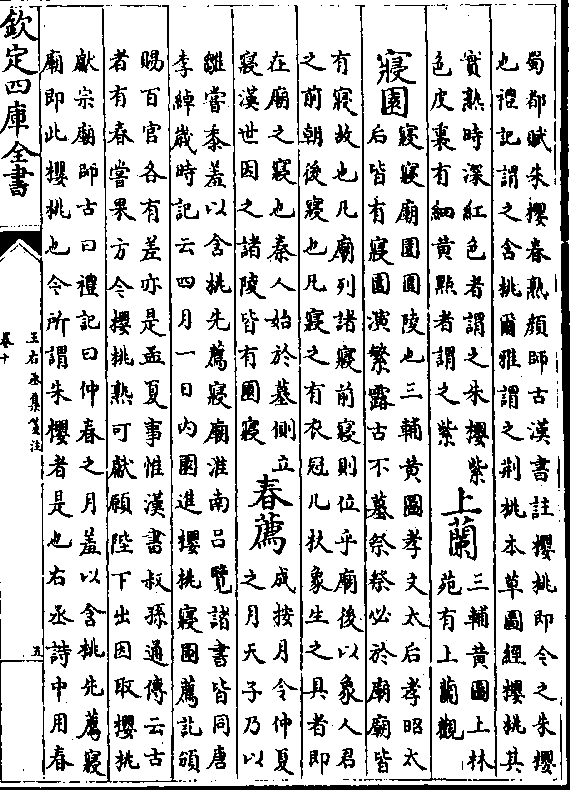 蜀都賦朱櫻春熟顔師古漢書註櫻桃即今之朱櫻
也禮記謂之含桃爾雅謂之荆桃本草圖經櫻桃其
實熟時深紅色者謂之朱櫻紫
色皮裏有細黄點者謂之紫
上蘭
三輔黄圖上林
苑有上蘭觀
寢園
寢寢廟園園陵也三輔黄圖孝文太后孝昭太
后皆有寢園演繁露古不墓祭祭必於廟廟皆
有寢故也凡廟列諸寢前寢則位乎廟後以象人君
之前朝後寢也凡寢之有衣冠几杖象生之具者即
在廟之寢也秦人始於墓側立
寢漢世因之諸陵皆有園寢
春薦
成按月令仲夏
之月天子乃以
雛嘗黍羞以含桃先薦寢廟淮南吕覽諸書皆同唐
李綽歳時記云四月一日内園進櫻桃寢園薦訖頒
賜百官各有差亦是孟夏事惟漢書叔孫通傳云古
者有春嘗果方今櫻桃熟可獻願陛下出因取櫻桃
獻宗廟師古曰禮記曰仲春之月羞以含桃先薦寢
廟即此櫻桃也今所謂朱櫻者是也右丞詩中用春
欽定四庫全書
王右丞集箋注
卷十
五